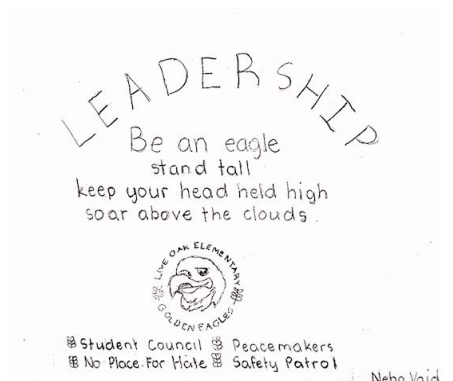 LEADERSHIP
Be an eagle
stand tall
keep your head held high
soar above the clouds.
LIVE OAK ELEMENTARY
GOLDEN EAGLES
Student Council Peacemakers
No Place For Hate Safety Patrol